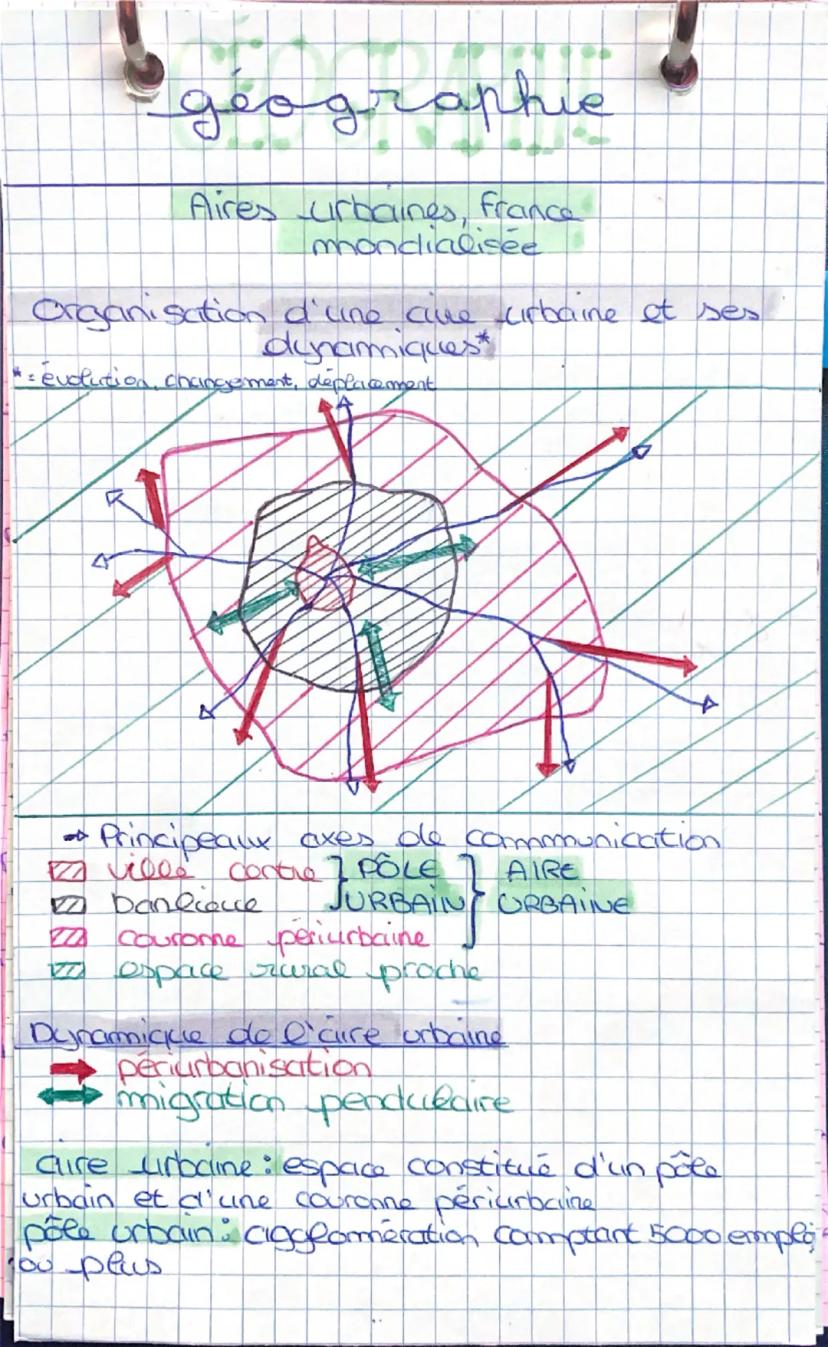 GÉOGRAPHIE
géographie
Aires urbaines, France
mondialisée
Organisation d'une aire urbaine et ses
dynamiques*
*= évolution, changement, déplacement
→ Principeaux axes de communication
ville centre } PÔLE } AIRE
banlieue } URBAIN } URBAINE
couronne périurbaine
espace rural proche
Dynamique de l'aire urbaine
périurbanisation
migration pendulaire
aire urbaine : espace constitué d'un pôle
urbain et d'une couronne périurbaine
pôle urbain : agglomération comptant 5000 emploi
ou plus